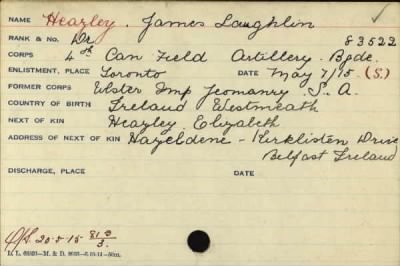 NAME Heazley. James Laughlin
RANK & NO. Dr. 83522
CORPS 4th Can Field Artillery. Bgde.
ENLISTMENT, PLACE Toronto DATE May 7/15. (S.)
FORMER CORPS Ulster Imp Yeomanry S. A.
COUNTRY OF BIRTH Ireland Westmeath
NEXT OF KIN Heazley Elizabeth
ADDRESS OF NEXT OF KIN Hazeldene - Kirkliston Drive
Belfast Ireland
DISCHARGE, PLACE DATE
20-5-15